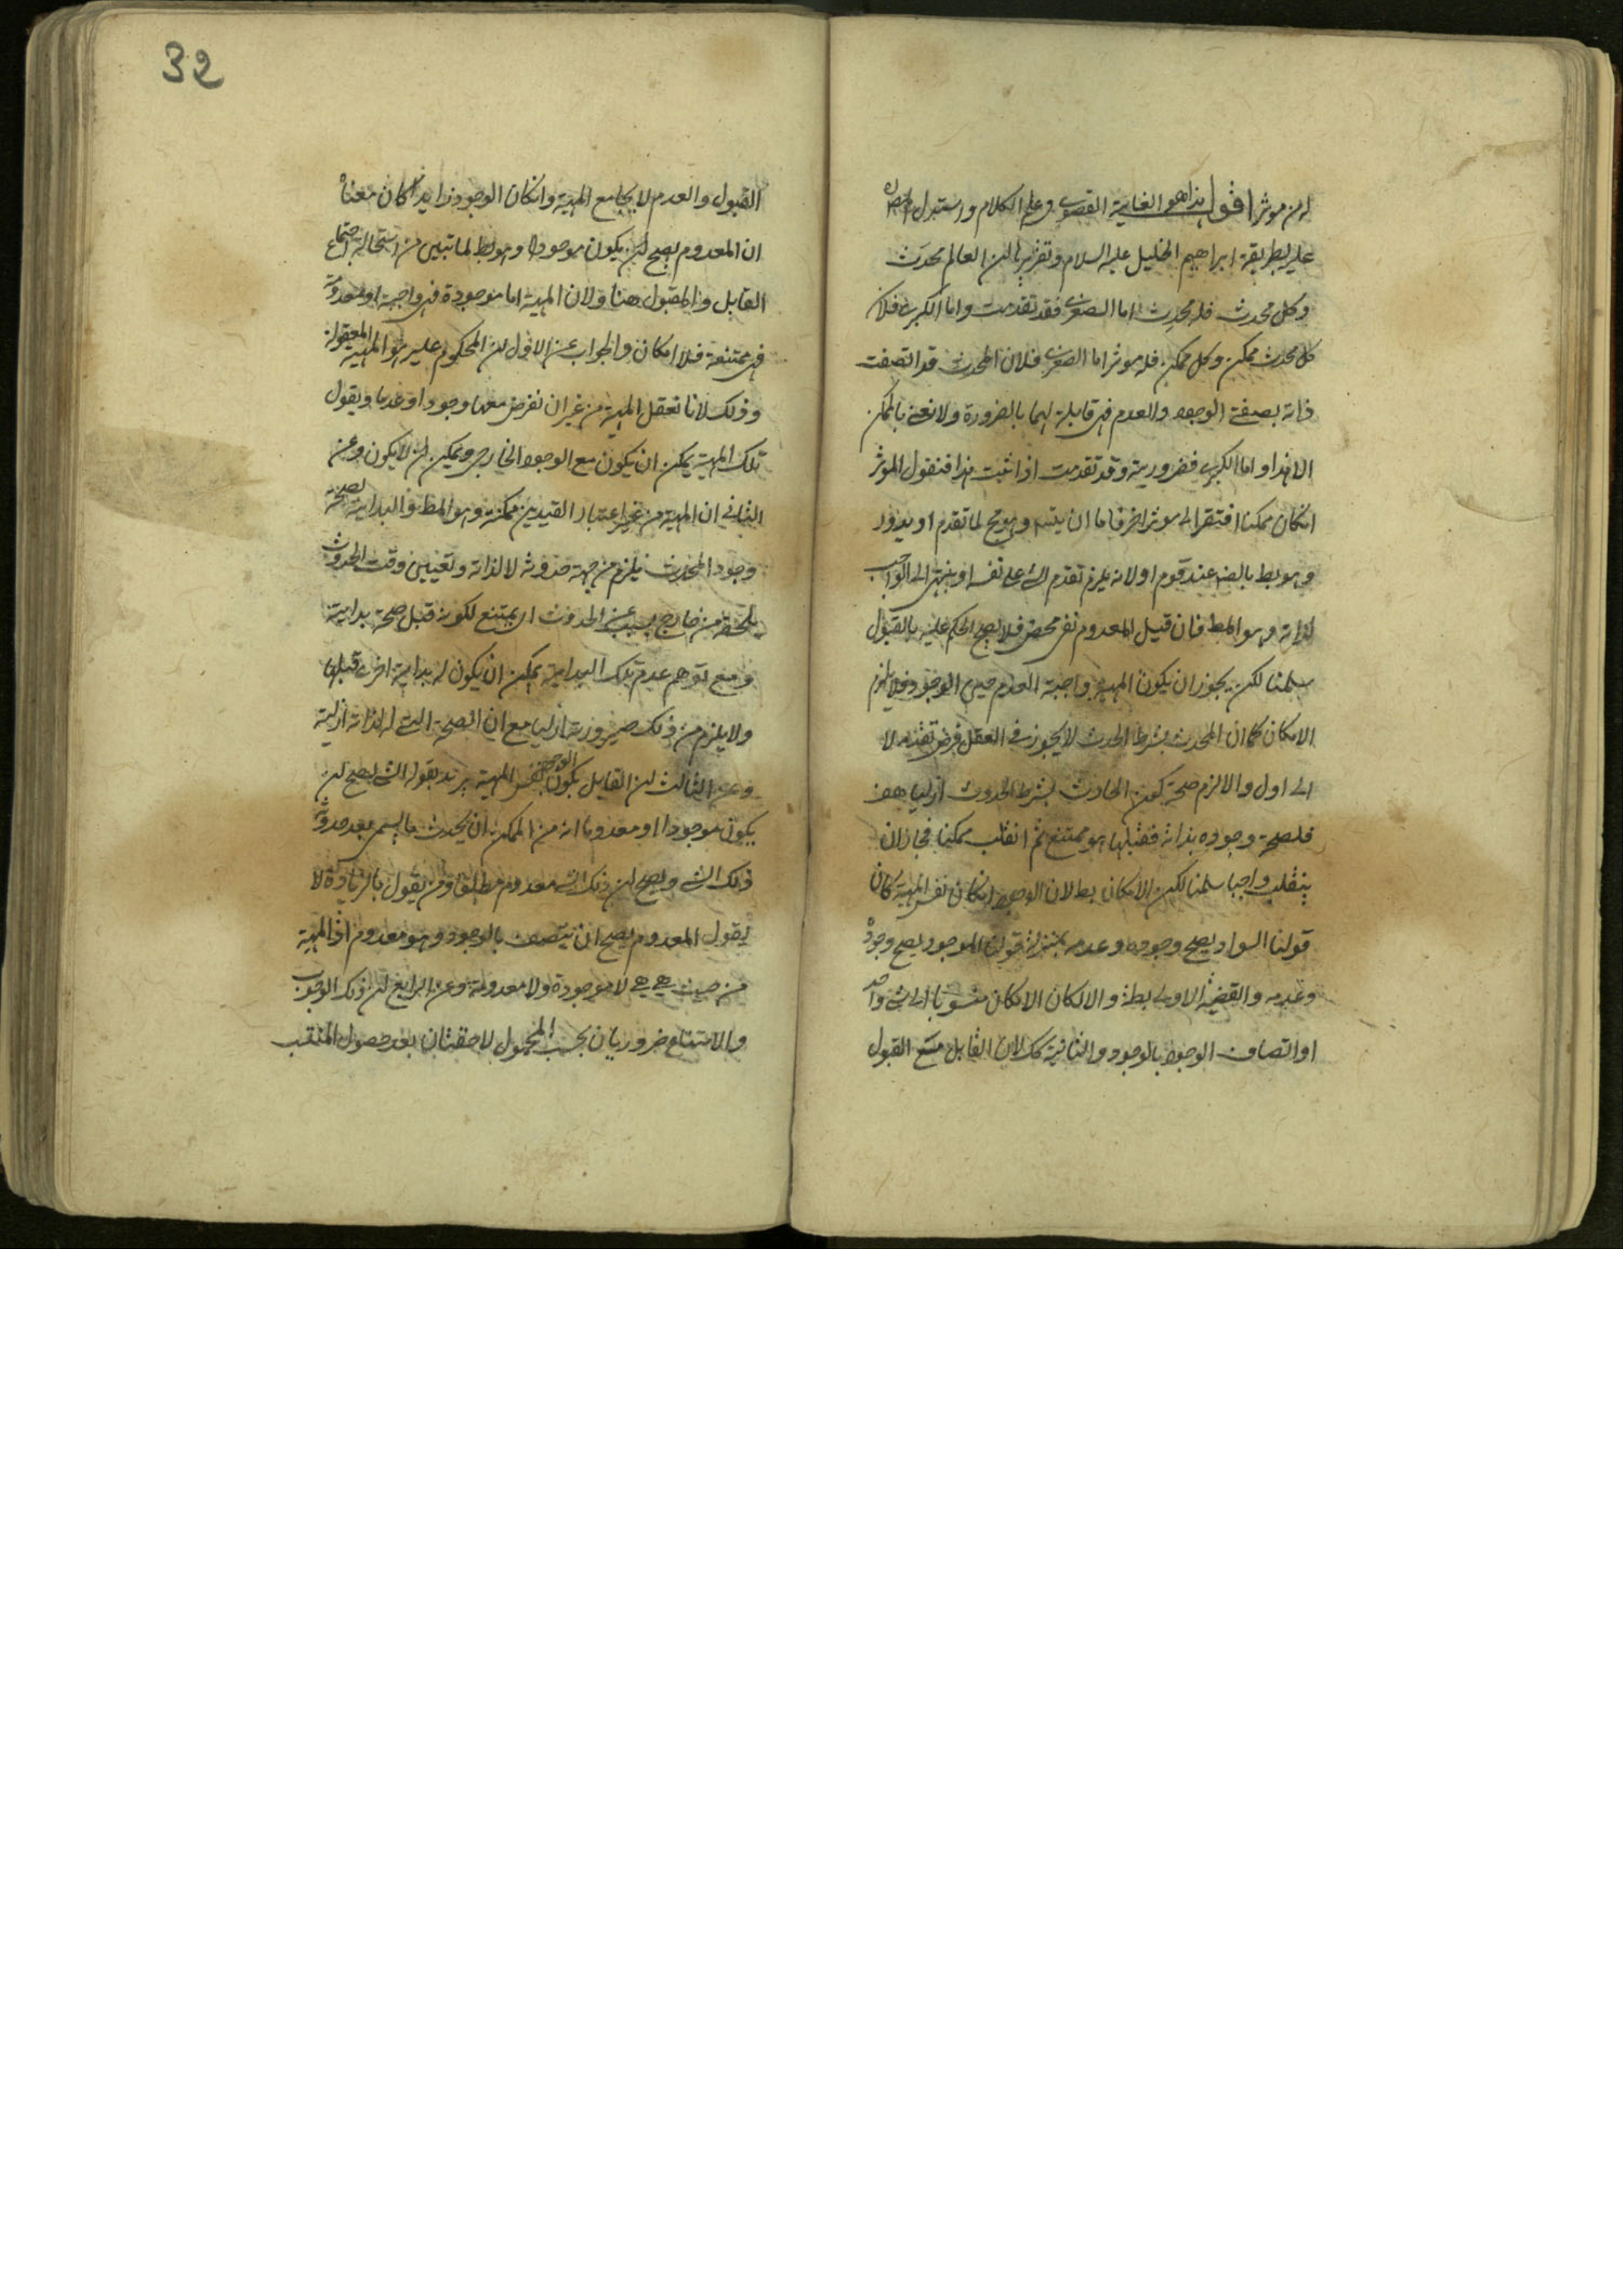 له من موثر اقول هذا هو الغاية القصوى في علم الكلام واستدل المصنف
عليه بطريقة ابراهيم الخليل عليه السلام وتقريرها ان العالم محدث
وكل محدث فله محدث اما الصغرى فقد تقدمت واما الكبرى فلان
كل محدث ممكن وكل ممكن فله موثر اما الصغرى فلان المحدث قد اتصفت
ذاته بصفتى الوجود والعدم فهى قابلة لهما بالضرورة ولا نعنى بالممكن
الا هذا واما الكبرى فضرورية وقد تقدمت اذا ثبت هذا فنقول الموثر
ان كان ممكنا افتقر الى موثر اخر فاما ان يتسلسل وهو مح لما تقدم او يدور
وهو بط بالضرورة عند قوم او لانه يلزم تقدم الشى على نفسه او ينتهى الى الواجب
لذاته وهو المط فان قيل المعدوم نفى محض فلا يصح الحكم عليه بالقبول
سلمنا لكن يجوز ان يكون المهية واجبة العدم حين الوجود فلا يلزم
الامكان كما ان المحدث بشرط الحدث لا يجوز فى العقل فرض تقدمه لا
الى اول والا لزم صحة كون الحادث بشرط الحدوث ازليا هف
فلصحة وجوده بداية فقبلها هو ممتنع ثم انقلب ممكنا فجاز ان
ينقلب واجبا سلمنا لكن الامكان بط لان الوجود ان كان نفس المهية كان
قولنا السواد يصح وجوده وعدمه بمنزلة قولنا الموجود يصح وجوده
وعدمه والقضية الاولى بط والا لكان الامكان منسوبا الى شى واحد
او اتصاف الوجود بالوجود والثانية كك لان القابل مع القبول
32
القبول والعدم لا يجامع المهية وان كان الوجود زايدا كان معناه
ان المعدوم يصح ان يكون موجودا وهو بط لما تبين من استحالة اجتماع
القابل والمقبول هنا ولان المهية اما موجودة فهى واجبة او معدومة
فهى ممتنعة فلا امكان والجواب عن الاول ان المحكوم عليه هو المهية المعقولة
وذلك لانا نعقل المهية من غير ان نفرض معها وجودا او عدما ونقول
تلك المهية يمكن ان يكون مع الوجود الخارجى ويمكن ان لا يكون وعن
الثانى ان المهية من غير اعتبار القيدين ممكنة وهو المط والبداية لصحة
وجود المحدث يلزم من جهة حدوثه لا لذاته وتعيين وقت الحدوث
يلحقه من خارج بسبب عن الحدوث ان يمتنع لكونه قبل صحة بداية
ومع توهم عدم تلك البداية يمكن ان يكون له بداية اخرى قبلها
ولا يلزم من ذلك صيرورته ازليا مع ان الصحة التى له لذاته ازلية
وعن الثالث ان القايل بكون الوجود نفس المهية يريد بقوله الشى يصح ان
يكون موجودا او معدوما انه من الممكن ان يحدث ما يسمى بعد حدوثه
ذلك الشى ويصح ان ذلك الشى معدوم مطلقا ومن يقول بالزيادة لا
يقول المعدوم يصح ان يتصف بالوجود وهو معدوم اذ المهية
من حيث هى هى لا موجودة ولا معدومة وعن الرابع ان ذلك الوجوب
والامتناع ضروريان بحسب المحمول لاحقتان بعد حصول المنقب